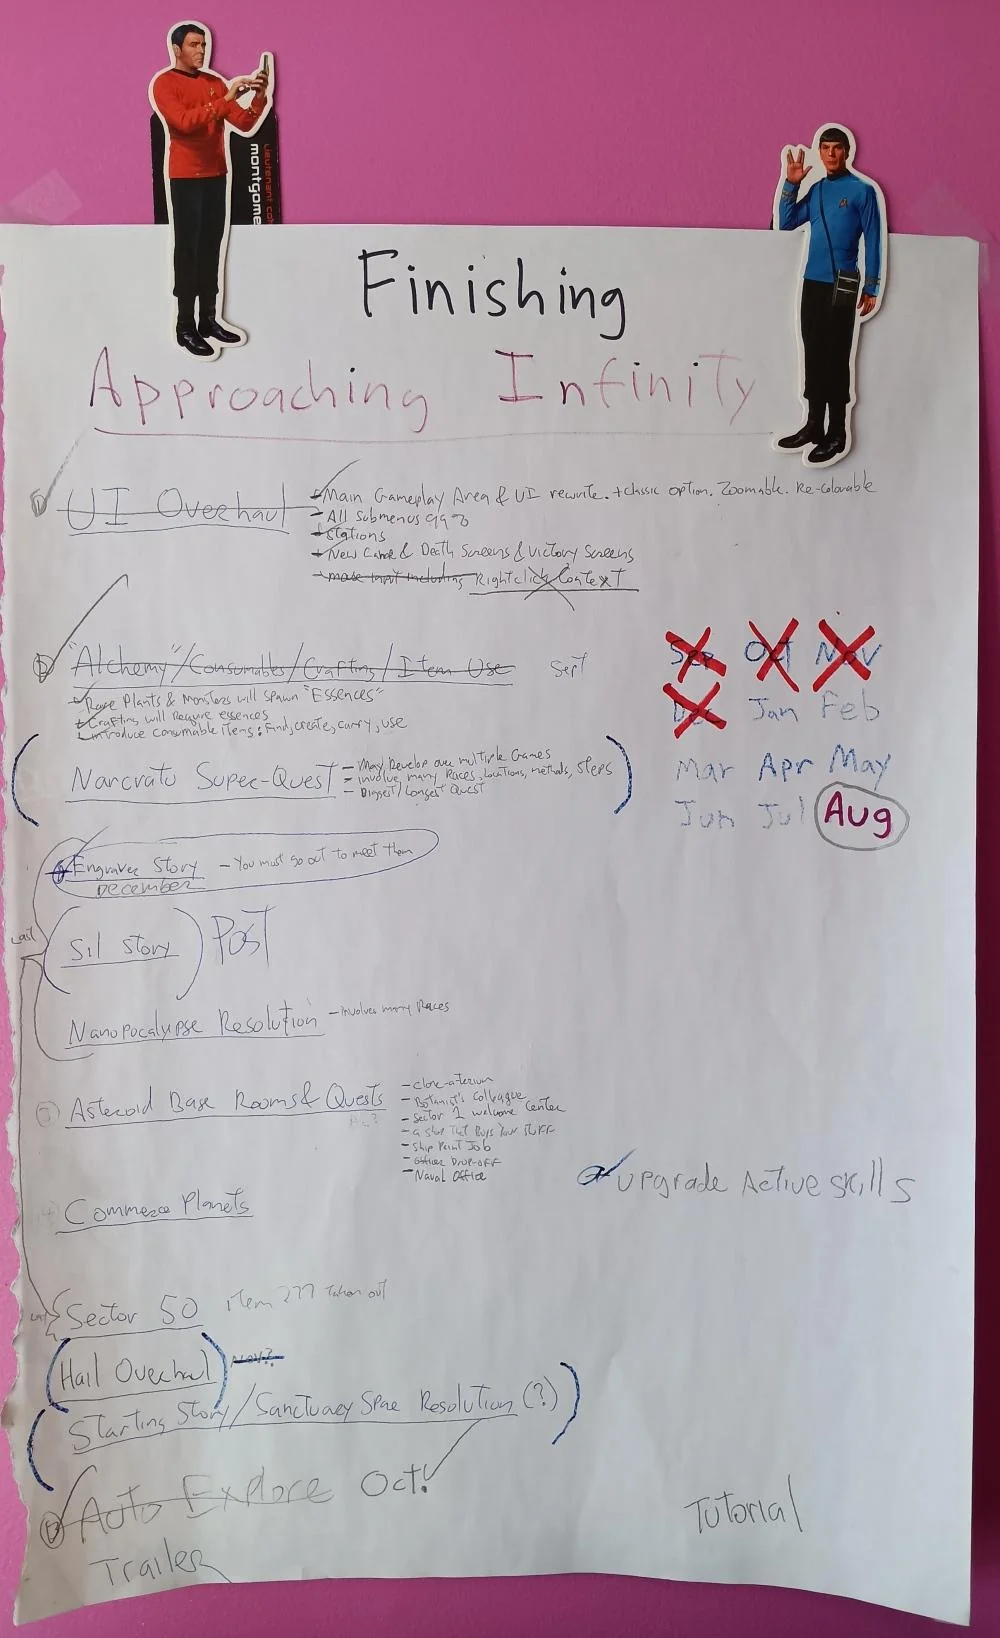 lieutenant co
montgome
Finishing
Approaching Infinity
UI Overhaul
- Main Gameplay Area & UI rewrite. + classic option. Zoomable. Re-Colourable
- All Submenus
- Stations
- New Game & Death Screens & Victory Screens
- mouse input including Rightclick Context
"Alchemy"/Consumables/Crafting/Item Use Sept
- Rare Plants & Monsters will spawn "Essences"
- Crafting will Require essences
- introduce consumable items: Find, create, carry, use
Sep Oct Nov
Dec Jan Feb
Mar Apr May
Jun Jul Aug
(Narcratu Super-Quest
- May Develop over multiple Games
- involve many Races, locations, methods, steps
- Biggest/Longest Quest)
Engraver Story - You must go out to meet them
December
Last
(Sil Story) Post
Nanopocalypse Resolution - involves many Races
5 Asteroid Base Rooms & Quests
- clone-aterium
- Botanist's Colleague
- Sector 1 welcome Center
- a shop That Buys Your Stuff
- Ship Paint Job
- officer Drop-off
- Naval Office
Upgrade Active skills
Commerce Planets
Sector 50 item 277 taken out
(Hail Overhaul) Nov?
(Starting Story/Sanctuary Spae Resolution (?))
Auto Explore Oct!
Trailer
Tutorial